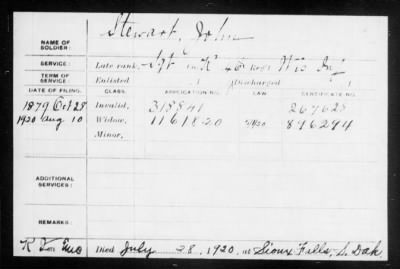 NAME OF SOLDIER: Stewart, John
SERVICE: Late rank, Sgt in K 46 Reg't Wis Inf
TERM OF SERVICE: Enlisted , 1 Discharged , 1
DATE OF FILING. CLASS. APPLICATION NO. LAW. CERTIFICATE NO.
1879 Oct 28 Invalid, 315841
1920 Aug 10 Widow, 1161820 896294
Minor,
ADDITIONAL SERVICES:
REMARKS:
Died July 28, 1920, at Sioux Falls, S. Dak